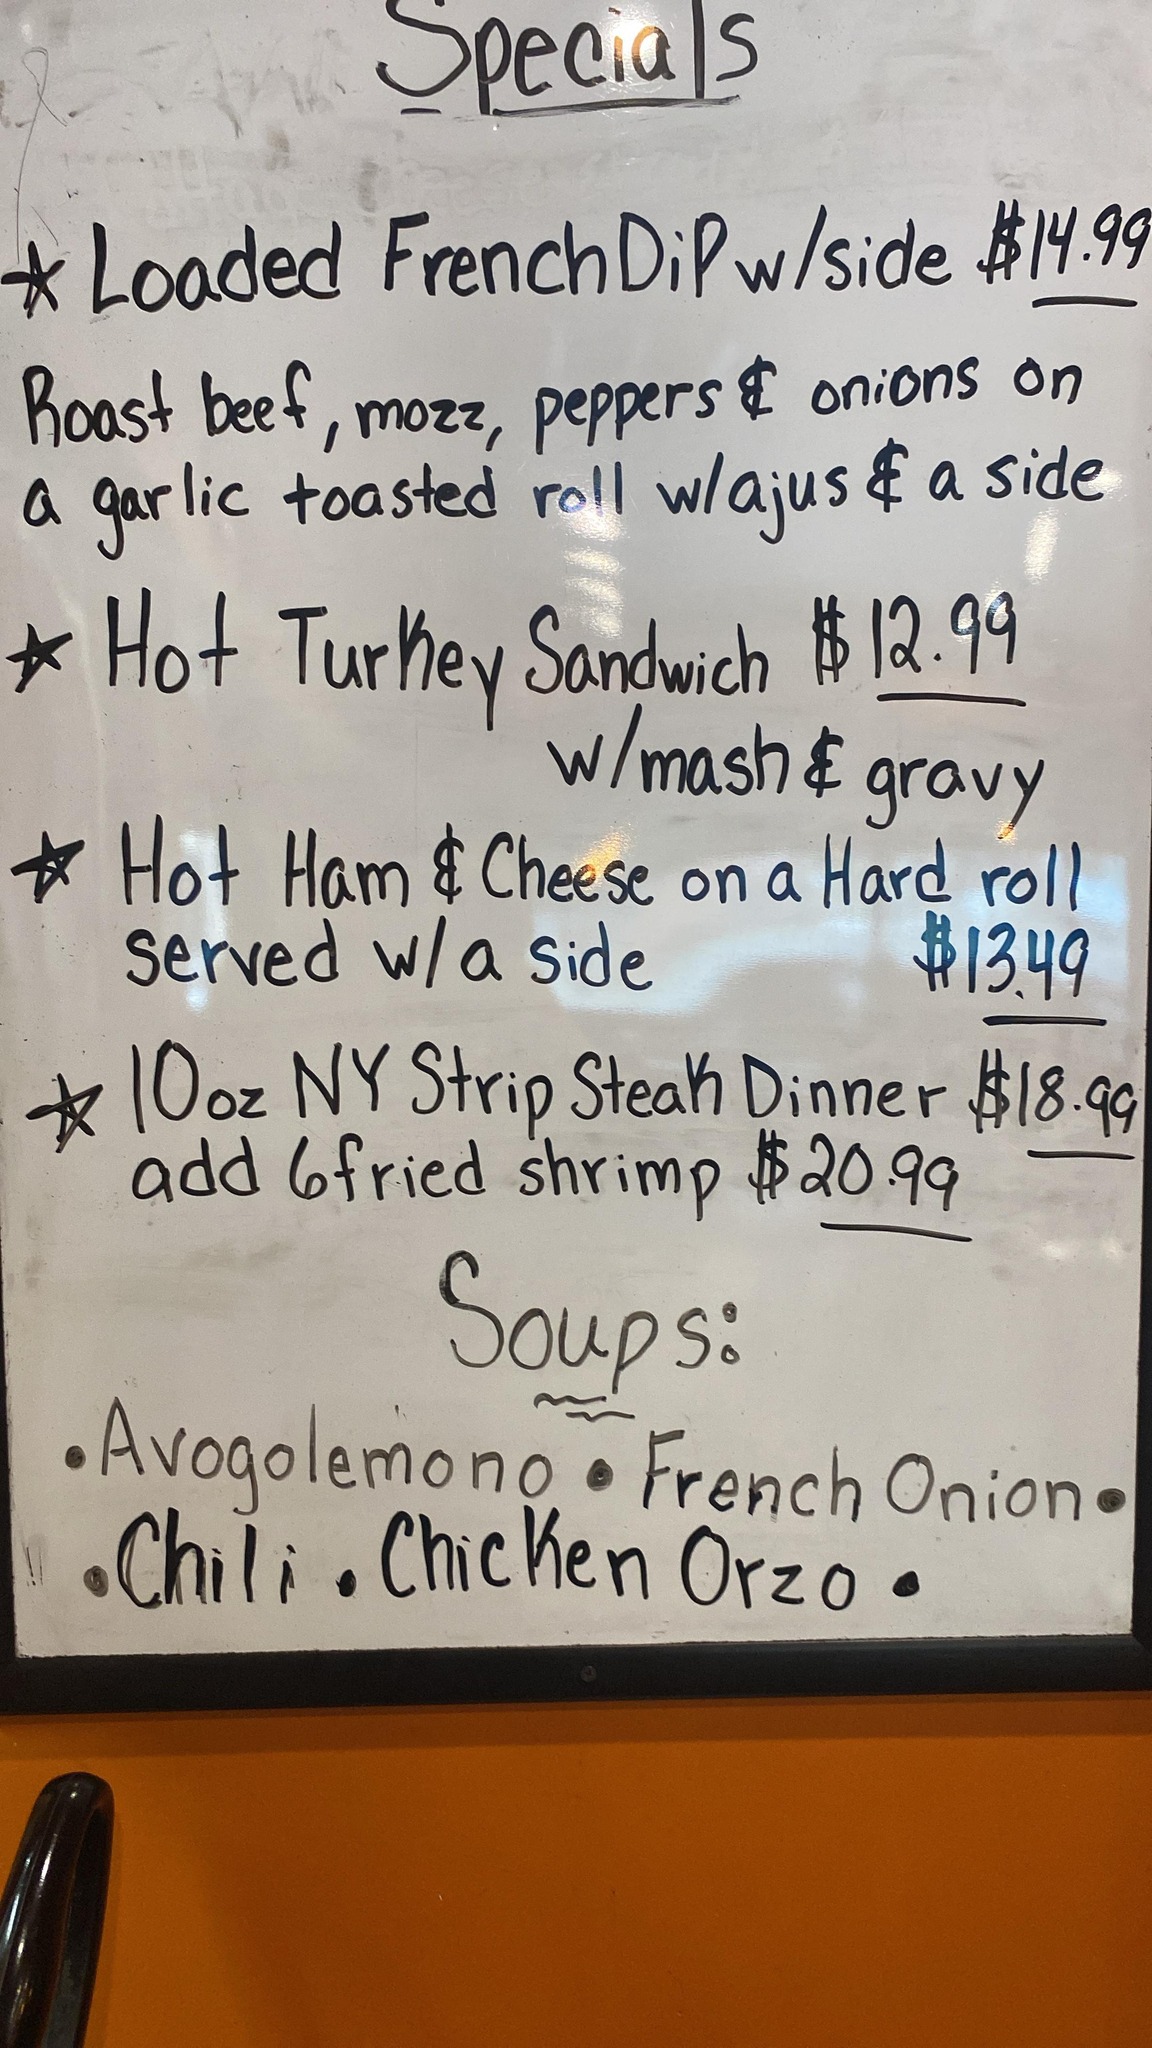 Specials
☆ Loaded French Dip w/side $14.99
Roast beef, mozz, peppers & onions on
a garlic toasted roll w/ajus & a side
☆ Hot Turkey Sandwich $12.99
w/mash & gravy
☆ Hot Ham & Cheese on a Hard roll
served w/a side $13.49
☆ 10oz NY Strip Steak Dinner $18.99
add 6 fried shrimp $20.99
Soups:
• Avogolemono • French Onion •
• Chili • Chicken Orzo •